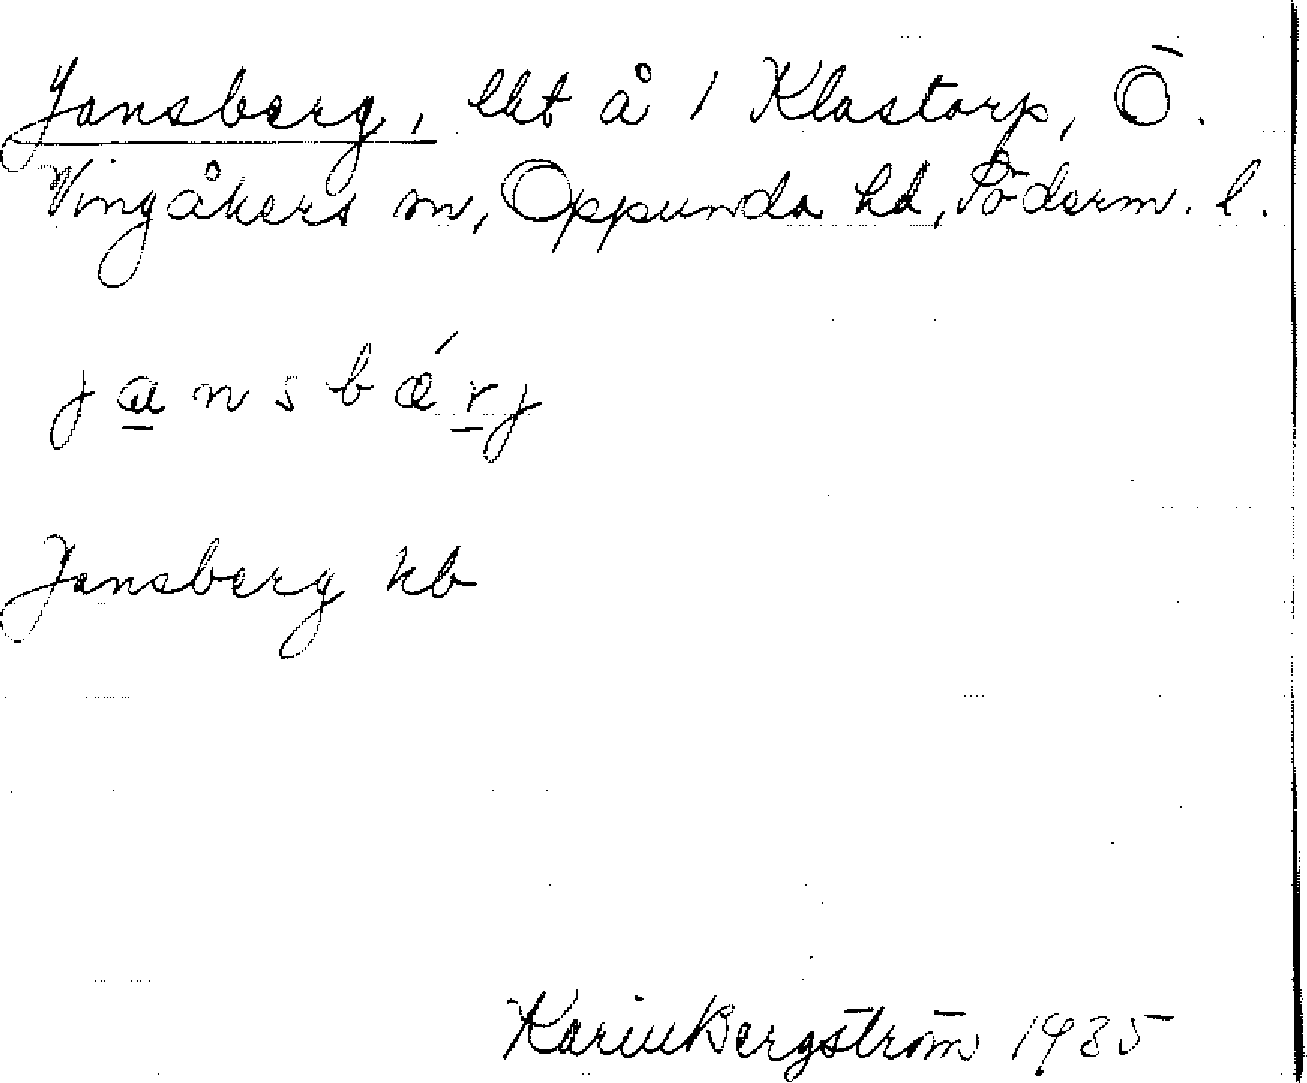 Jansberg, lht å 1 Klastorp, Ö.
Vingåkers sn, Oppunda hd, Söderm. l.
jansbǽrj
Jansberg kb
Karin Bergström 1935